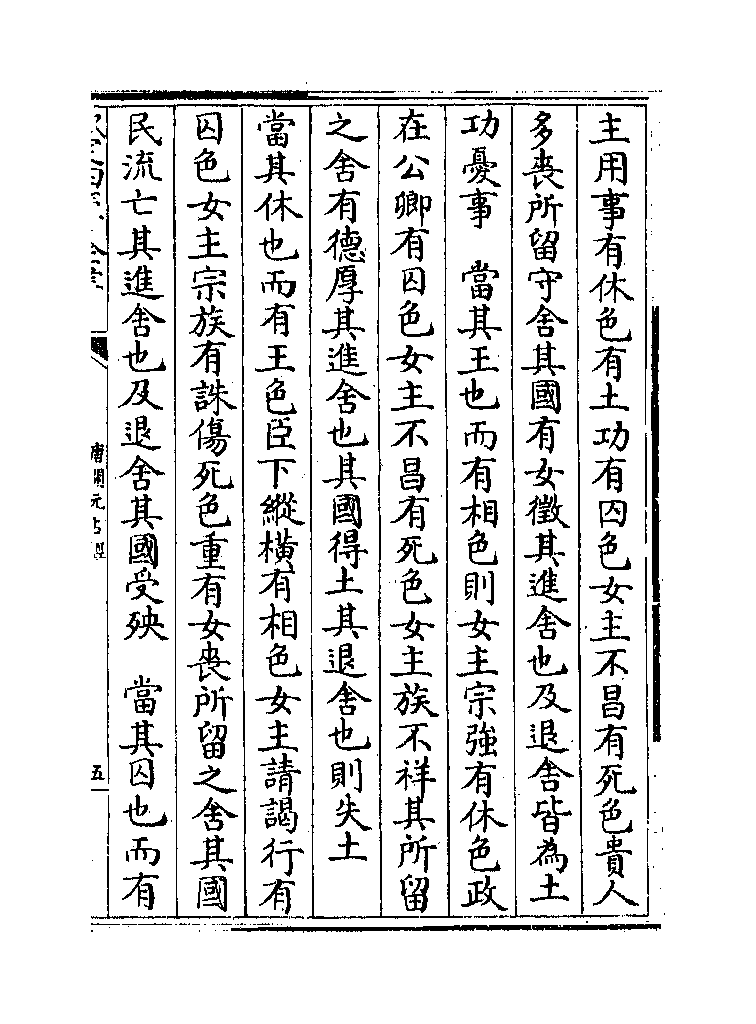 主用事有休色有土功有囚色女主不昌有死色貴人
多喪所留守舍其國有女徵其進舍也及退舍皆為土
功憂事　當其王也而有相色則女主宗強有休色政
在公卿有囚色女主不昌有死色女主族不祥其所留
之舍有德厚其進舍也其國得土其退舍也則失土
當其休也而有王色臣下縱橫有相色女主請謁行有
囚色女主宗族有誅傷死色重有女喪所留之舍其國
民流亡其進舍也及退舍其國受殃　當其囚也而有
唐開元占經
五